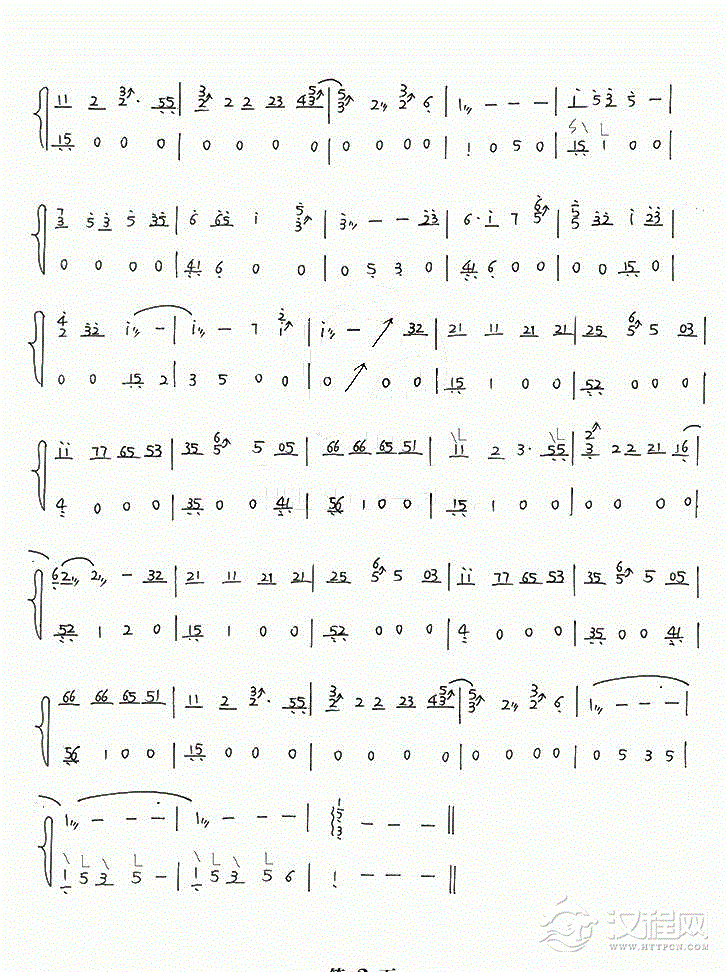 11 2 3/2· 55 | 3/2 2 2 23 43 5/3 | 5/3 2 3/2 6 | 1 – – – | i 5 3 5 – |
15 0 0 0 | 0 0 0 0 | 0 0 0 0 | 1 0 5 0 | 15 1 0 0 |
7/3 5 3 5 35 | 6 65 i 5/3 | 3 – – 23 | 6· i 7 6/5 | 5 32 i 23 |
0 0 0 0 | 41 6 0 0 | 0 5 3 0 | 41 6 0 0 | 0 0 15 0 |
4/2 32 i – | i – 7 2/i | i – 32 | 21 11 21 21 | 25 6/5 5 03 |
0 0 15 2 | 3 5 0 0 | 0 0 0 | 15 1 0 0 | 52 0 0 0 |
ii 77 65 53 | 35 6/5 5 05 | 66 66 65 51 | 11 2 3· 55 | 2/3 2 2 21 16 |
4 0 0 0 | 35 0 0 41 | 56 1 0 0 | 15 1 0 0 | 0 0 0 0 |
62 2 – 32 | 21 11 21 21 | 25 6/5 5 03 | ii 77 65 53 | 35 6/5 5 05 |
52 1 2 0 | 15 1 0 0 | 52 0 0 0 | 4 0 0 0 | 35 0 0 41 |
66 66 65 51 | 11 2 3/2· 55 | 3/2 2 2 23 43 5/3 | 5/3 2 3/2 6 | 1 – – – |
56 1 0 0 | 15 0 0 0 | 0 0 0 0 | 0 0 0 0 | 0 5 3 5 |
1 – – – | 1 – – – | 1/5/3 – – – ||
1 5 3 5 – | 1 5 3 5 6 | 1 – – – ||
汉程网
HTTPCN.COM